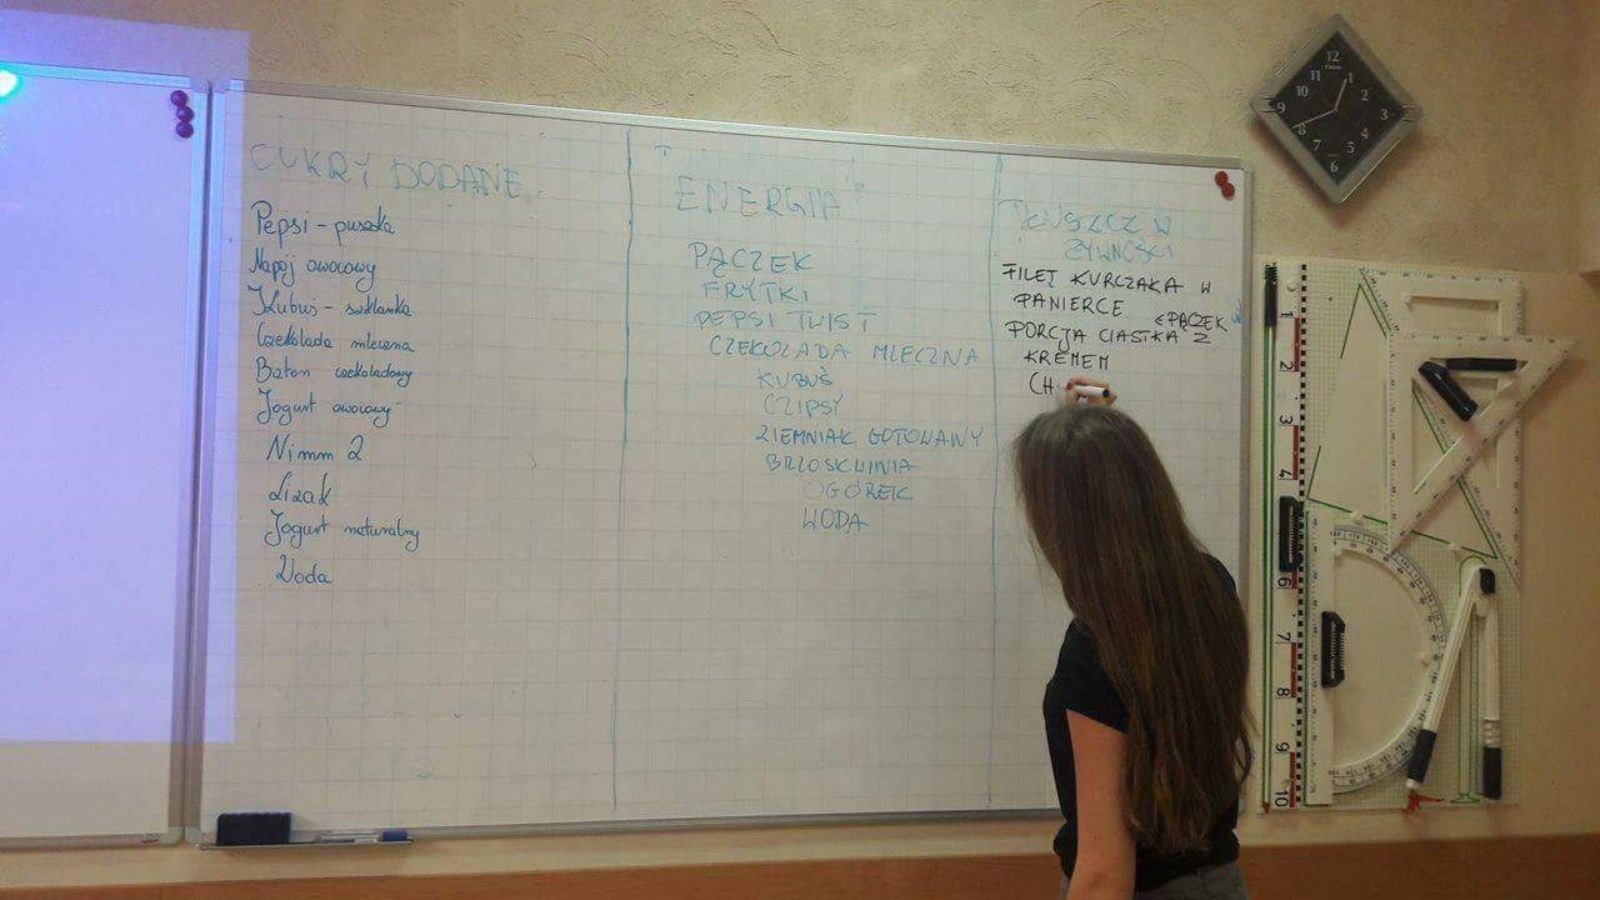 CUKRY DODANE
Pepsi - puszka
Napój owocowy
Kubuś - szklanka
Czekolada mleczna
Baton czekoladowy
Jogurt owocowy
Nimm 2
Lizak
Jogurt naturalny
Woda
ENERGIA
PĄCZEK
FRYTKI
PEPSI TWIST
CZEKOLADA MLECZNA
KUBUŚ
CZIPSY
ZIEMNIAK GOTOWANY
BRZOSKWINIA
OGÓREK
WODA
TŁUSZCZ W
ŻYWNOŚCI
FILET KURCZAKA W
PANIERCE
PĄCZEK
PORCJA CIASTKA Z
KREMEM
CH
12
1
2
3
4
5
6
7
8
9
10
11
1
2
3
4
6
7
8
9
10